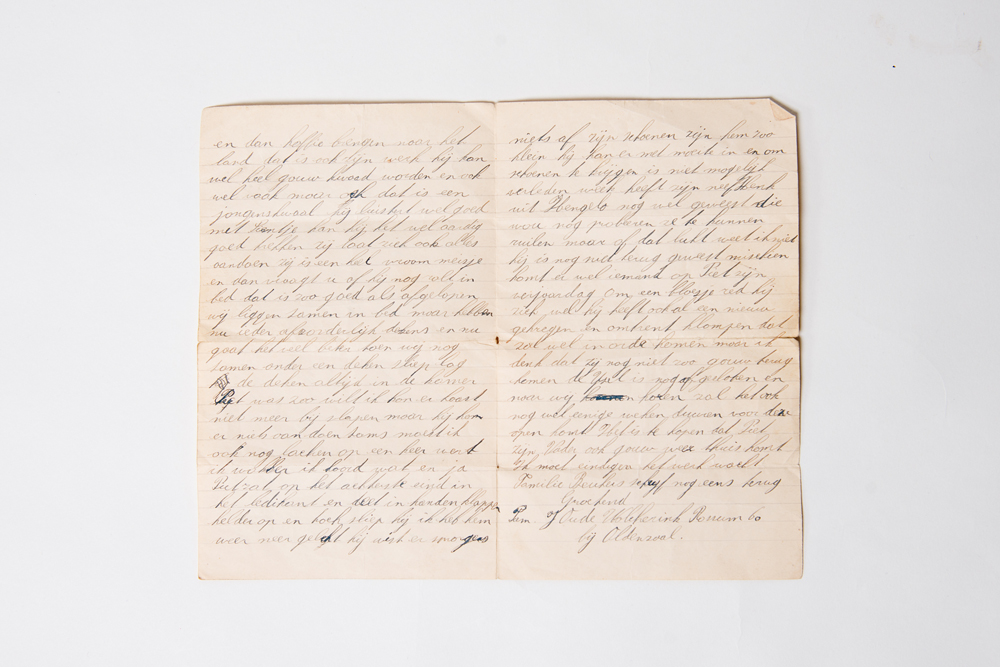 en dan koffie brengen naar het
land dat is ook zijn werk hij kan
wel heel gouw kwaad worden en ook
wel vaak moeier ook dat is een
jongenskwaal hij luistert wel goed
met Hentje kan hij het wel aardig
goed hebben zij laat zich ook alles
aandoen zij is een het vroom meisje
en dan vraagt u of hij nog zels in
bed dat is zoo goed als afgelopen
wij liggen samen in bed maar hebben
nu ieder afzonderlijk dekens en nu
gaat het veel beter toen wij nog
samen onder een deken sliep lag
de deken altijd in de kamer
Piet was zoo wild ik kon er haast
niet meer bij slapen maar hij kon
er niets aan doen soms moest ik
ook nog lachen op een keer word
ik wakker ik hoord wat en ja
Piet zat op het achterste eind in
het ledikant en deet in handen klappen
helder op en toch sliep hij ik heb hem
weer neer gelegt hij wist er smorgens
niets af zijn schoenen zijn hem zoo
klein hij kan er met moeite in en om
schoenen te krijgen is niet mogelijk
verleden week heeft zijn neef Henk
uit Hengelo nog wel geweest die
wou nog proberen ze te kunnen
ruilen maar of dat lukt weet ik niet
hij is nog niet terug geweest misschien
komt er wel iemand op Piet zijn
verjaardag om een bloesje red hij
zich wel hij heeft ook al een nieuw
gekregen en omtrent klompen dat
zal wel in orde komen maar ik
denk dat zij nog niet zoo gouw terug
komen de Yssel is nog afgesloten en
naar wij horen zal het ook
nog wel eenige weken deuren voor deze
open komt Het is te hopen dat Piet
zijn Vader ook gouw weer thuis komt
Ik moet eindigen het werk wacht
Familie schryf nog eens terug
Groetend
Fam. Oude Rossum 60
bij Oldenzaal.